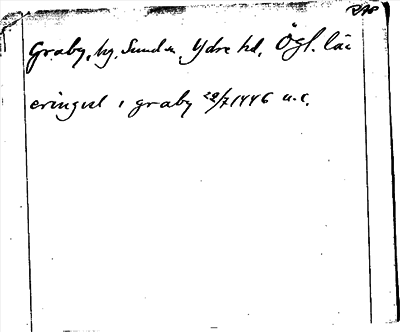 Graby, by, Sund sn Ydre hd, Ögl. län
eringisl i graby 22/7 1446 u.c.